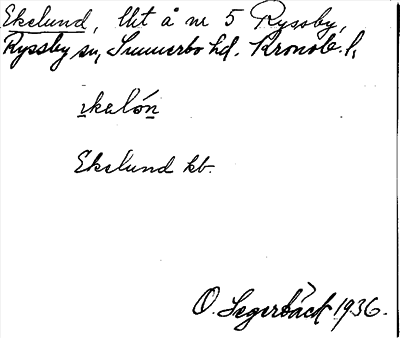 Ekelund, lht å nr 5 Ryssby,
Ryssby sn, Sunnerbo hd. Kronob. l,
Ekelund kb.
O. Segerbäck 1936.